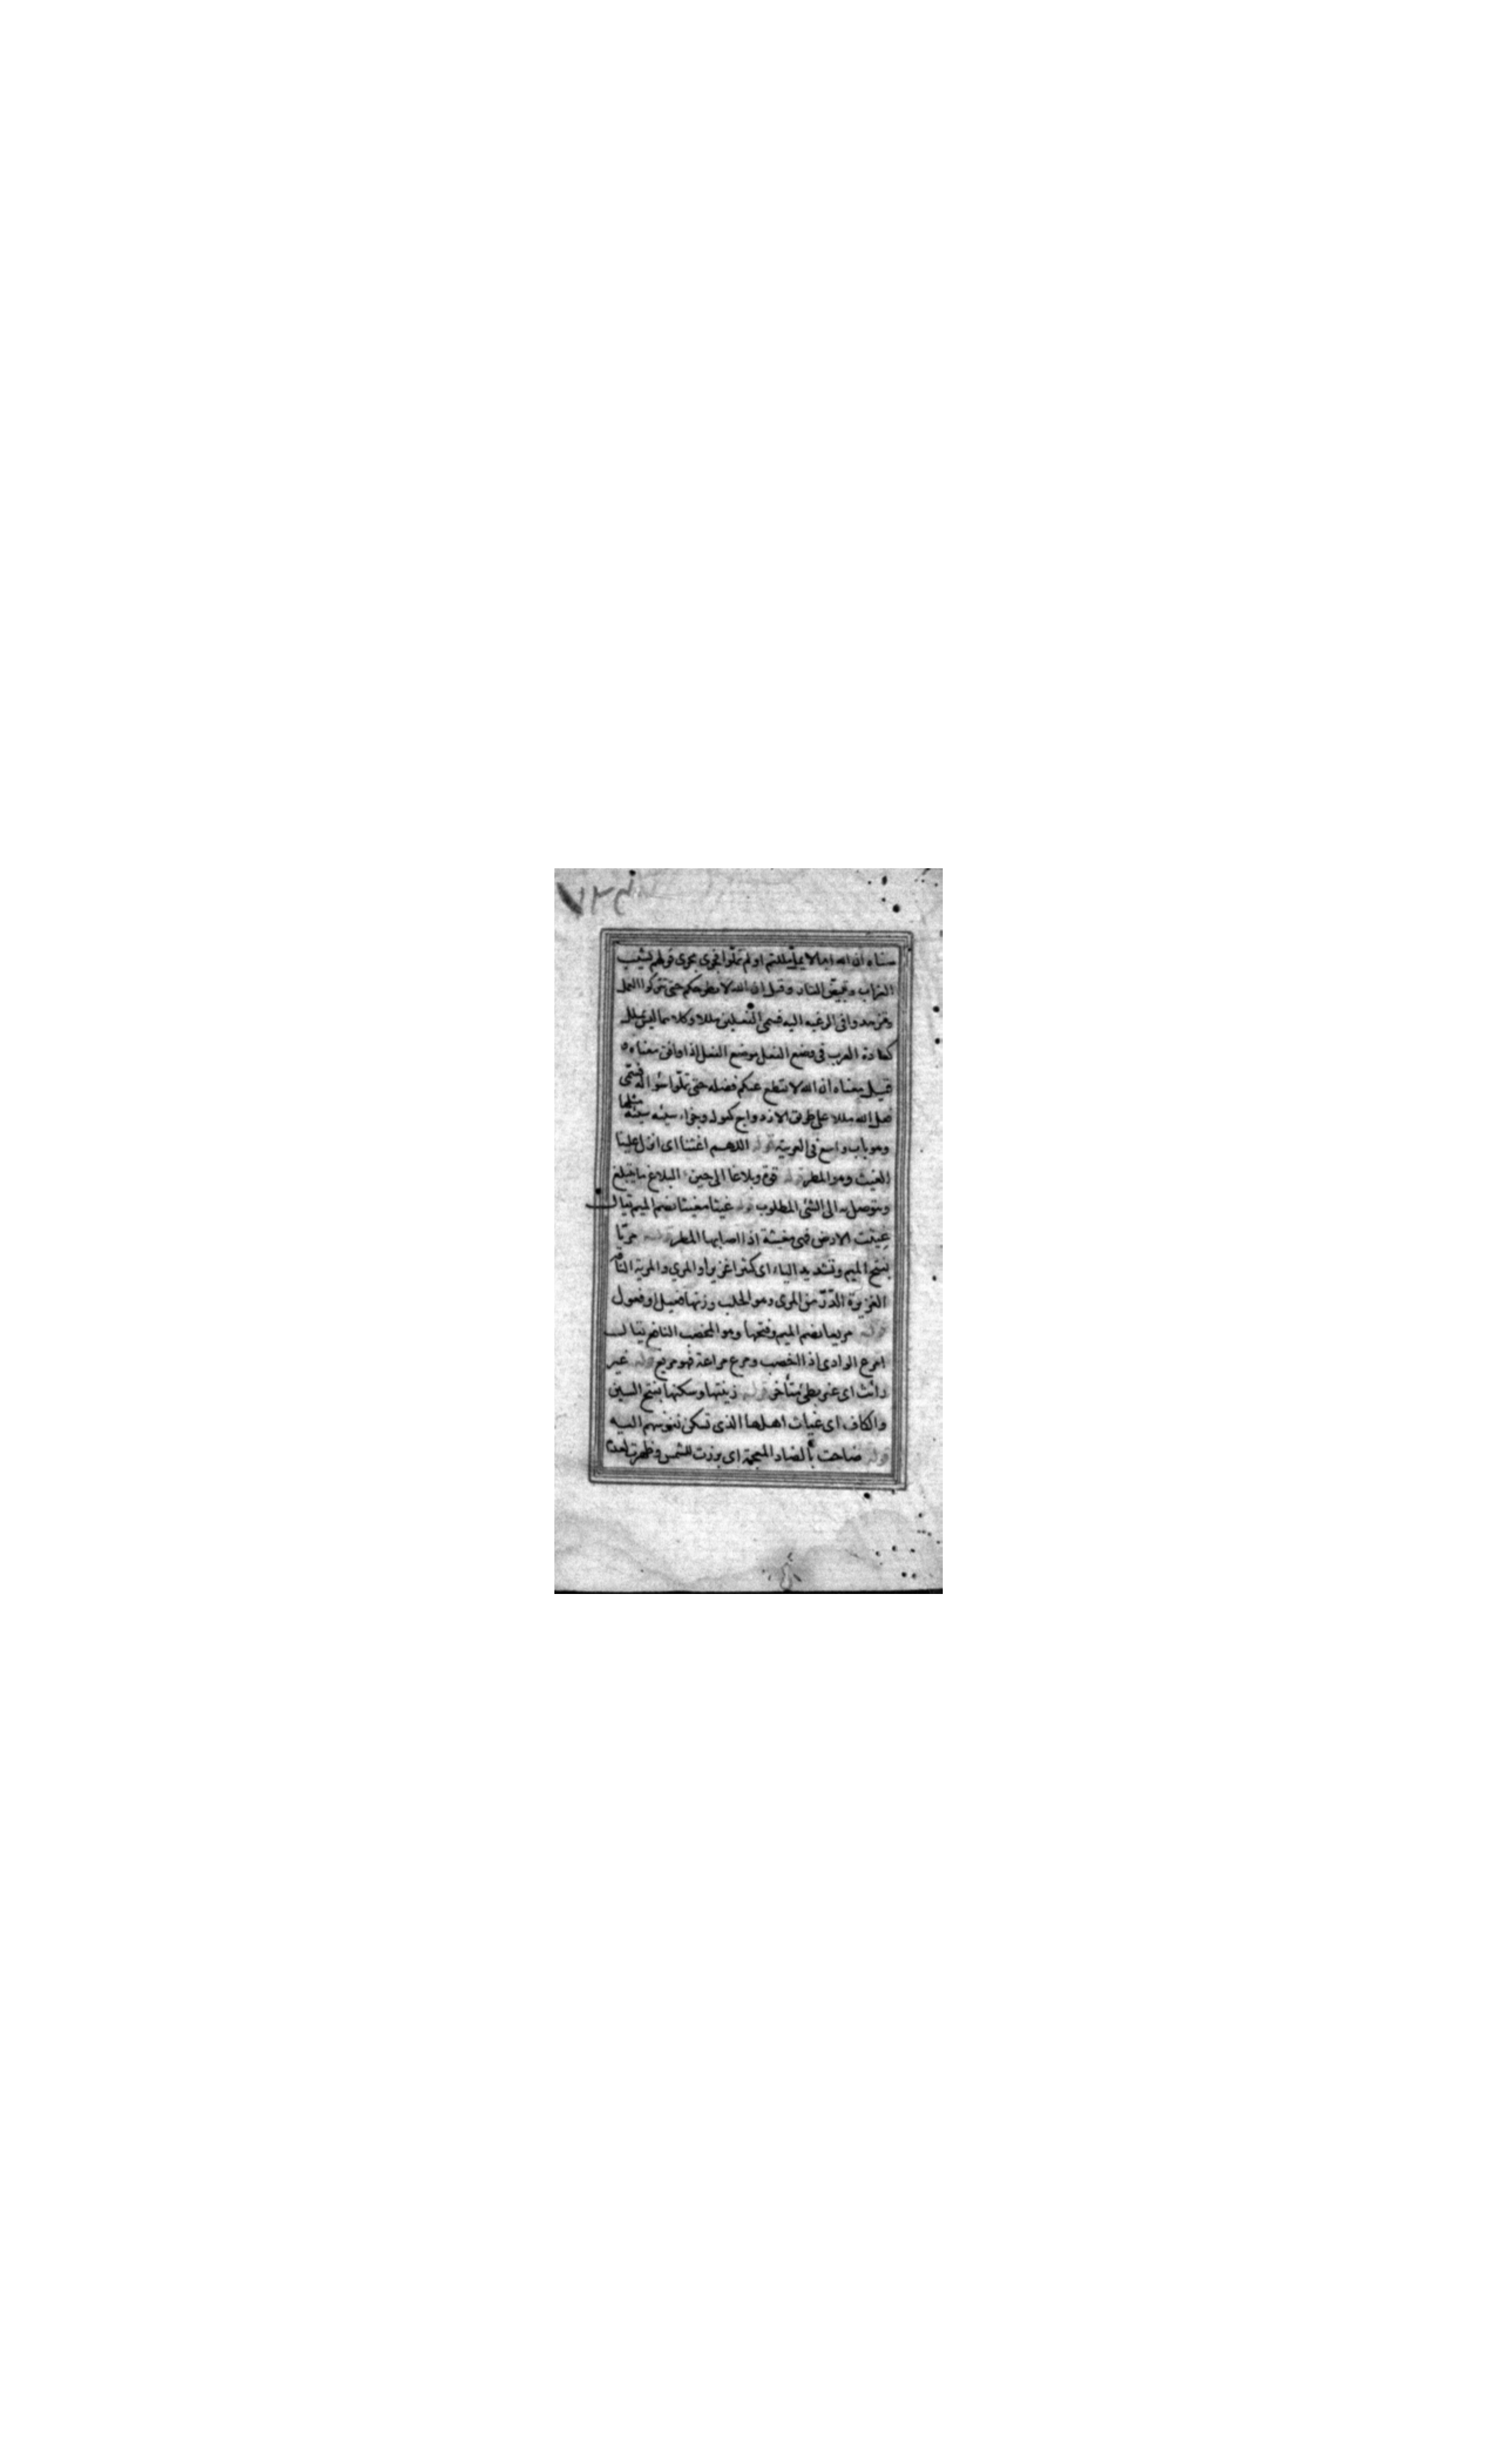 معناه ان الله لا يمل مللتم او لم تملوا فجرى مجرى قولهم يشيب
الغراب ويبيض القار وقيل ان الله لا يطرحكم حتى تتركوا العمل
وتزهدوا في الرغبه اليه فسمى الفعلين مللا وكلاهما ليس بملل
كعادة العرب في وضع الفعل موضع الفعل اذا وافق معناه
قيل معناه ان الله لا يقطع عنكم فضله حتى تملوا سؤاله فسمى
فعل الله مللا على طريق الازدواج كقوله وجزاء سيئه سيئه مثلها
وهو باب واسع في العربية قوله اللهم اغثنا اى انزل علينا
الغيث وهو المطر قوله قوة وبلاغا الى حين البلاغ ما يتبلغ
ويتوصل به الى الشئ المطلوب قوله غيثا مغيثا بضم الميم يقال
غيثت الارض فهى مغيثة اذا اصابها المطر قوله مريّا
بفتح الميم وتشديد الياء اى كثيرا غزيرا والمري والمرية الناقة
الغزيرة الدّر من المرى وهو الحلب وزنها فعيل او فعول
قوله مريعا بضم الميم وفتحها وهو المخصب الناجع يقال
امرع الوادى اذا اخصب ومرع مراعة فهو مريع قوله غير
رائث اى غير بطئ متأخر قوله زينتها وسكنها بفتح السين
والكاف اى غياث اهلها الذى تسكن نفوسهم اليه
قوله ضاحت بالضاد المعجمة اى برزت للشمس وظهرت لعدم